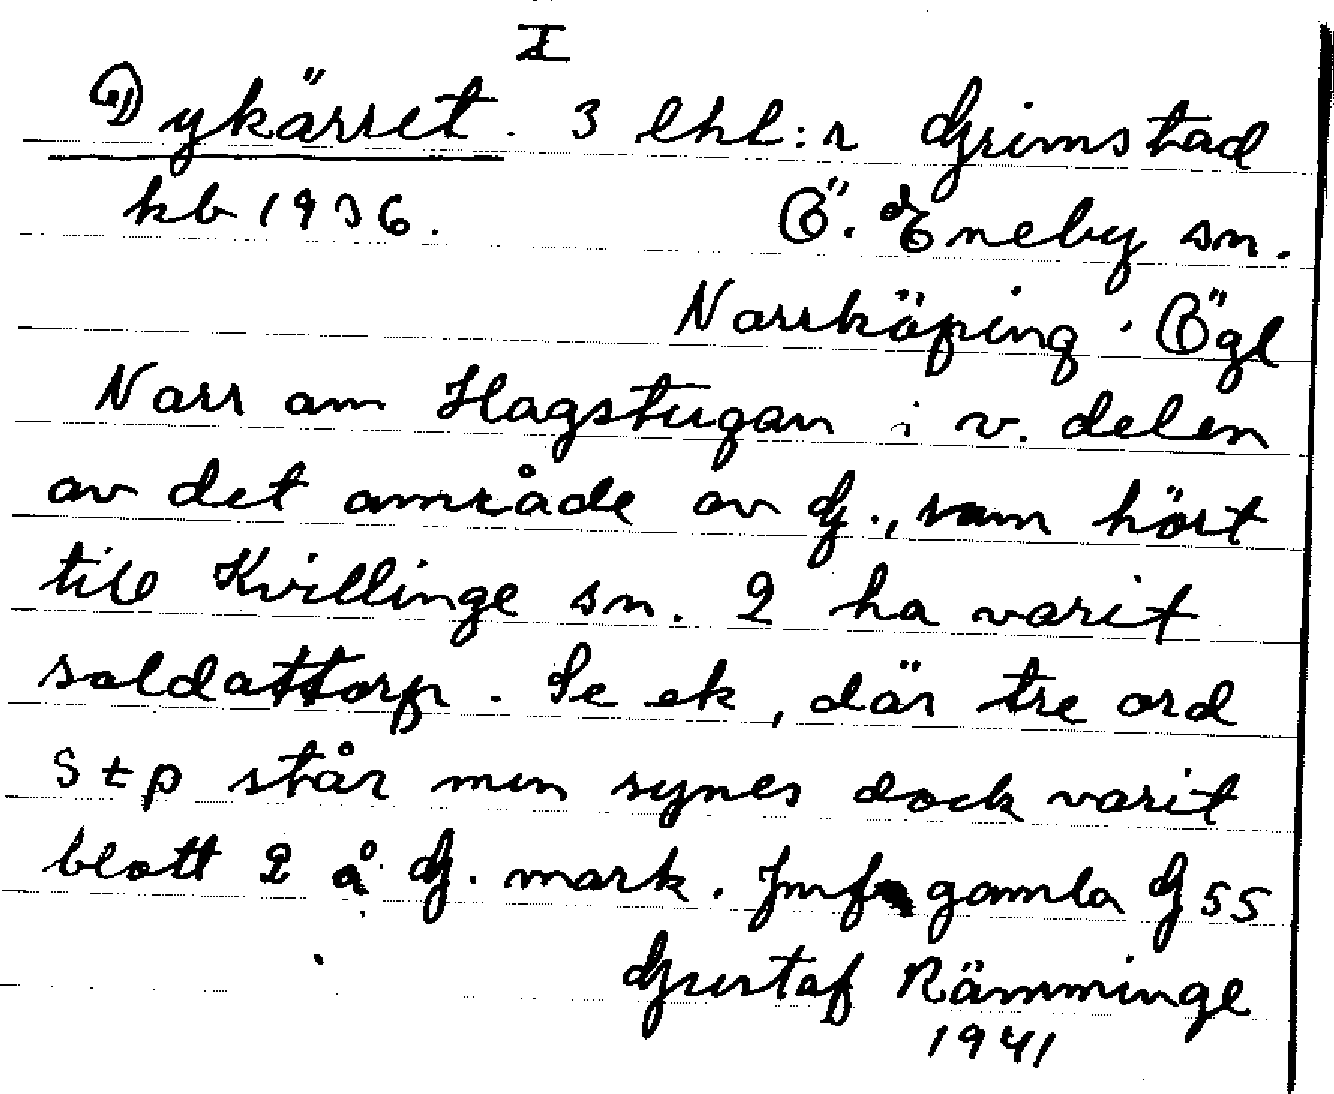 I
Dykärret. 3 lhl:r Grimstad
kb 1936. Ö. Eneby sn.
Norrköping. Ögl
Norr om Hagstugan i v. delen
av det område av G., som hört
till Kvillinge sn. 2 ha varit
soldattorp. Se ek, där tre ord
Stp står men synes dock varit
blott 2 å G. mark. Jmf gamla G 55
Gustaf Rämminge
1941